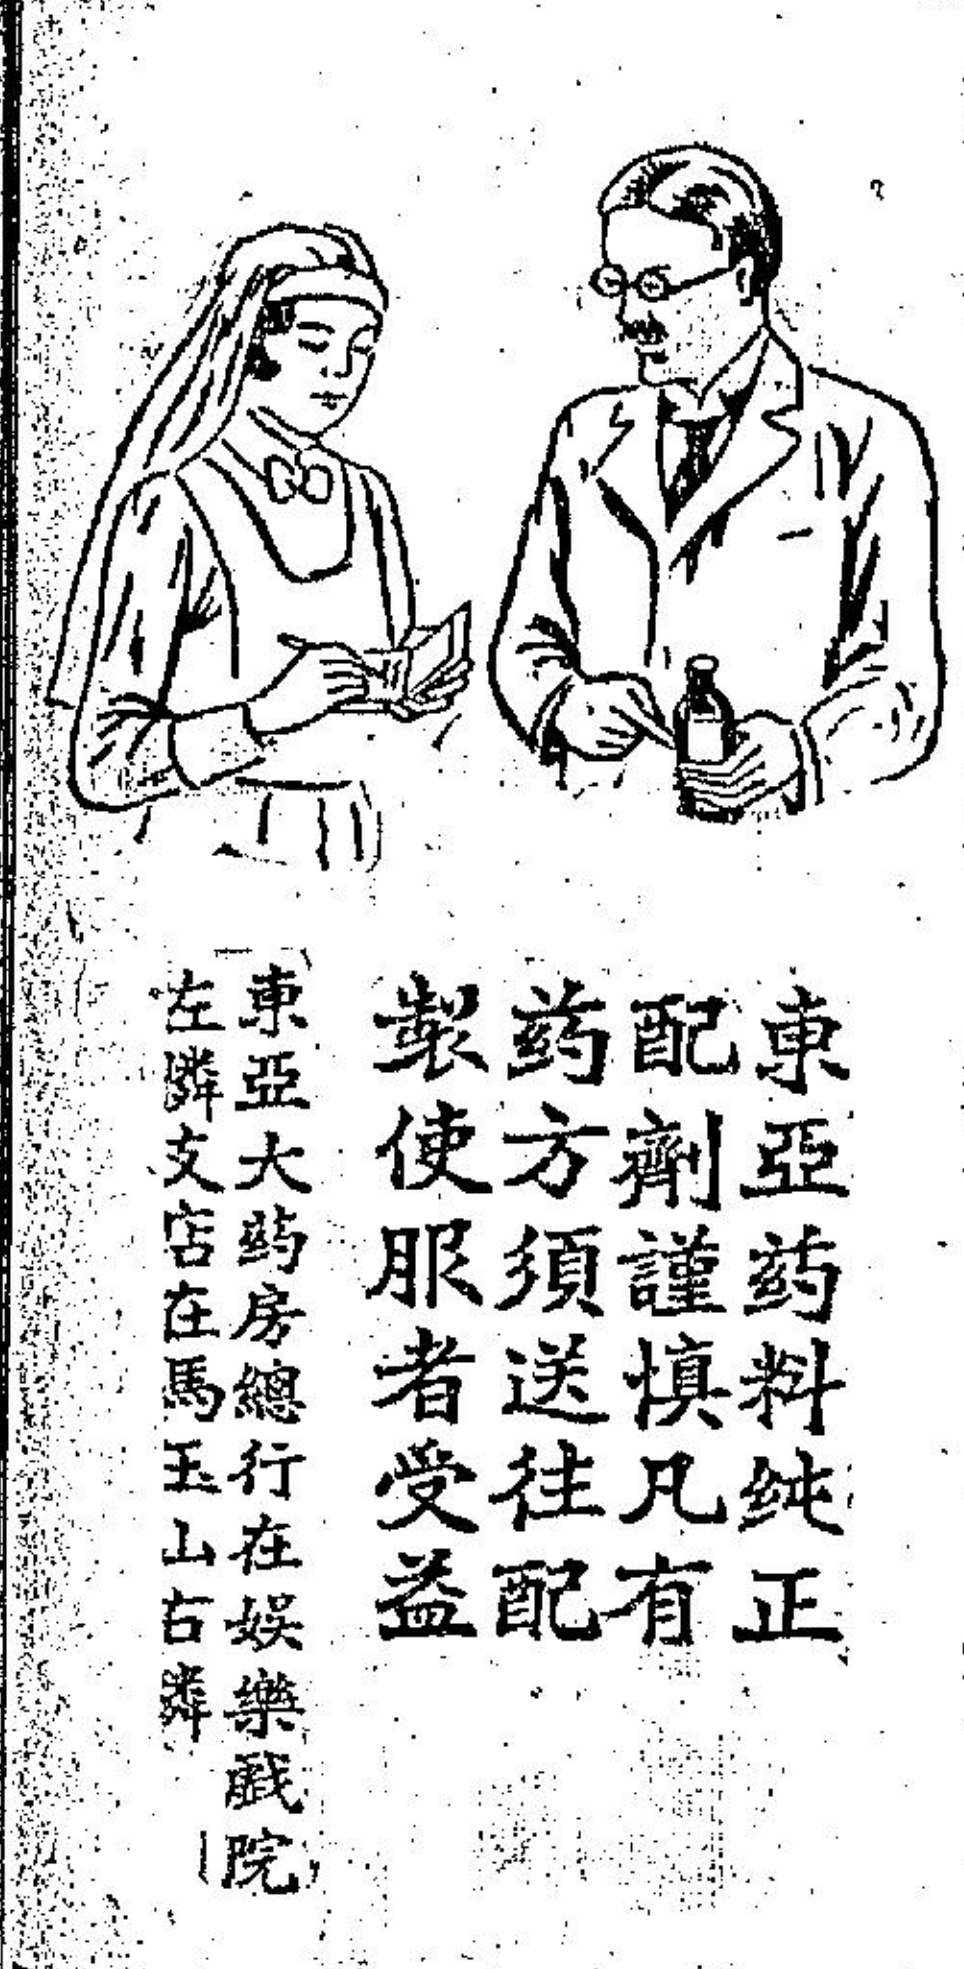 東亞药料純正
配劑謹慎凡有
药方須送往配
製使服者受益
東亞大药房總行在娛樂戲院
左隣支店在馬玉山右隣